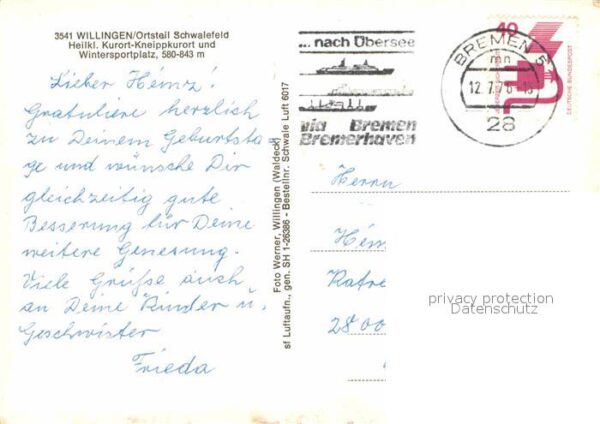 3541 WILLINGEN/Ortsteil Schwalefeld
Heilkl. Kurort-Kneippkurort und
Wintersportplatz, 580-843 m
Lieber Heinz!
Gratuliere herzlich
zu Deinem Geburtsta
ge und wünsche Dir
gleichzeitig gute
Besserung für Deine
weitere Genesung.
Viele Grüße auch
an Deine Kinder u.
Geschwister
Frieda
Foto Werner, Willingen (Waldeck)
sf Luftaufn., gen. SH 1-26386 - Bestellnr. Schwale Luft 6017
... nach Übersee
via Bremen
Bremerhaven
BREMEN 5
mn
28
40
DEUTSCHE BUNDESPOST
Herrn
2800
privacy protection
Datenschutz